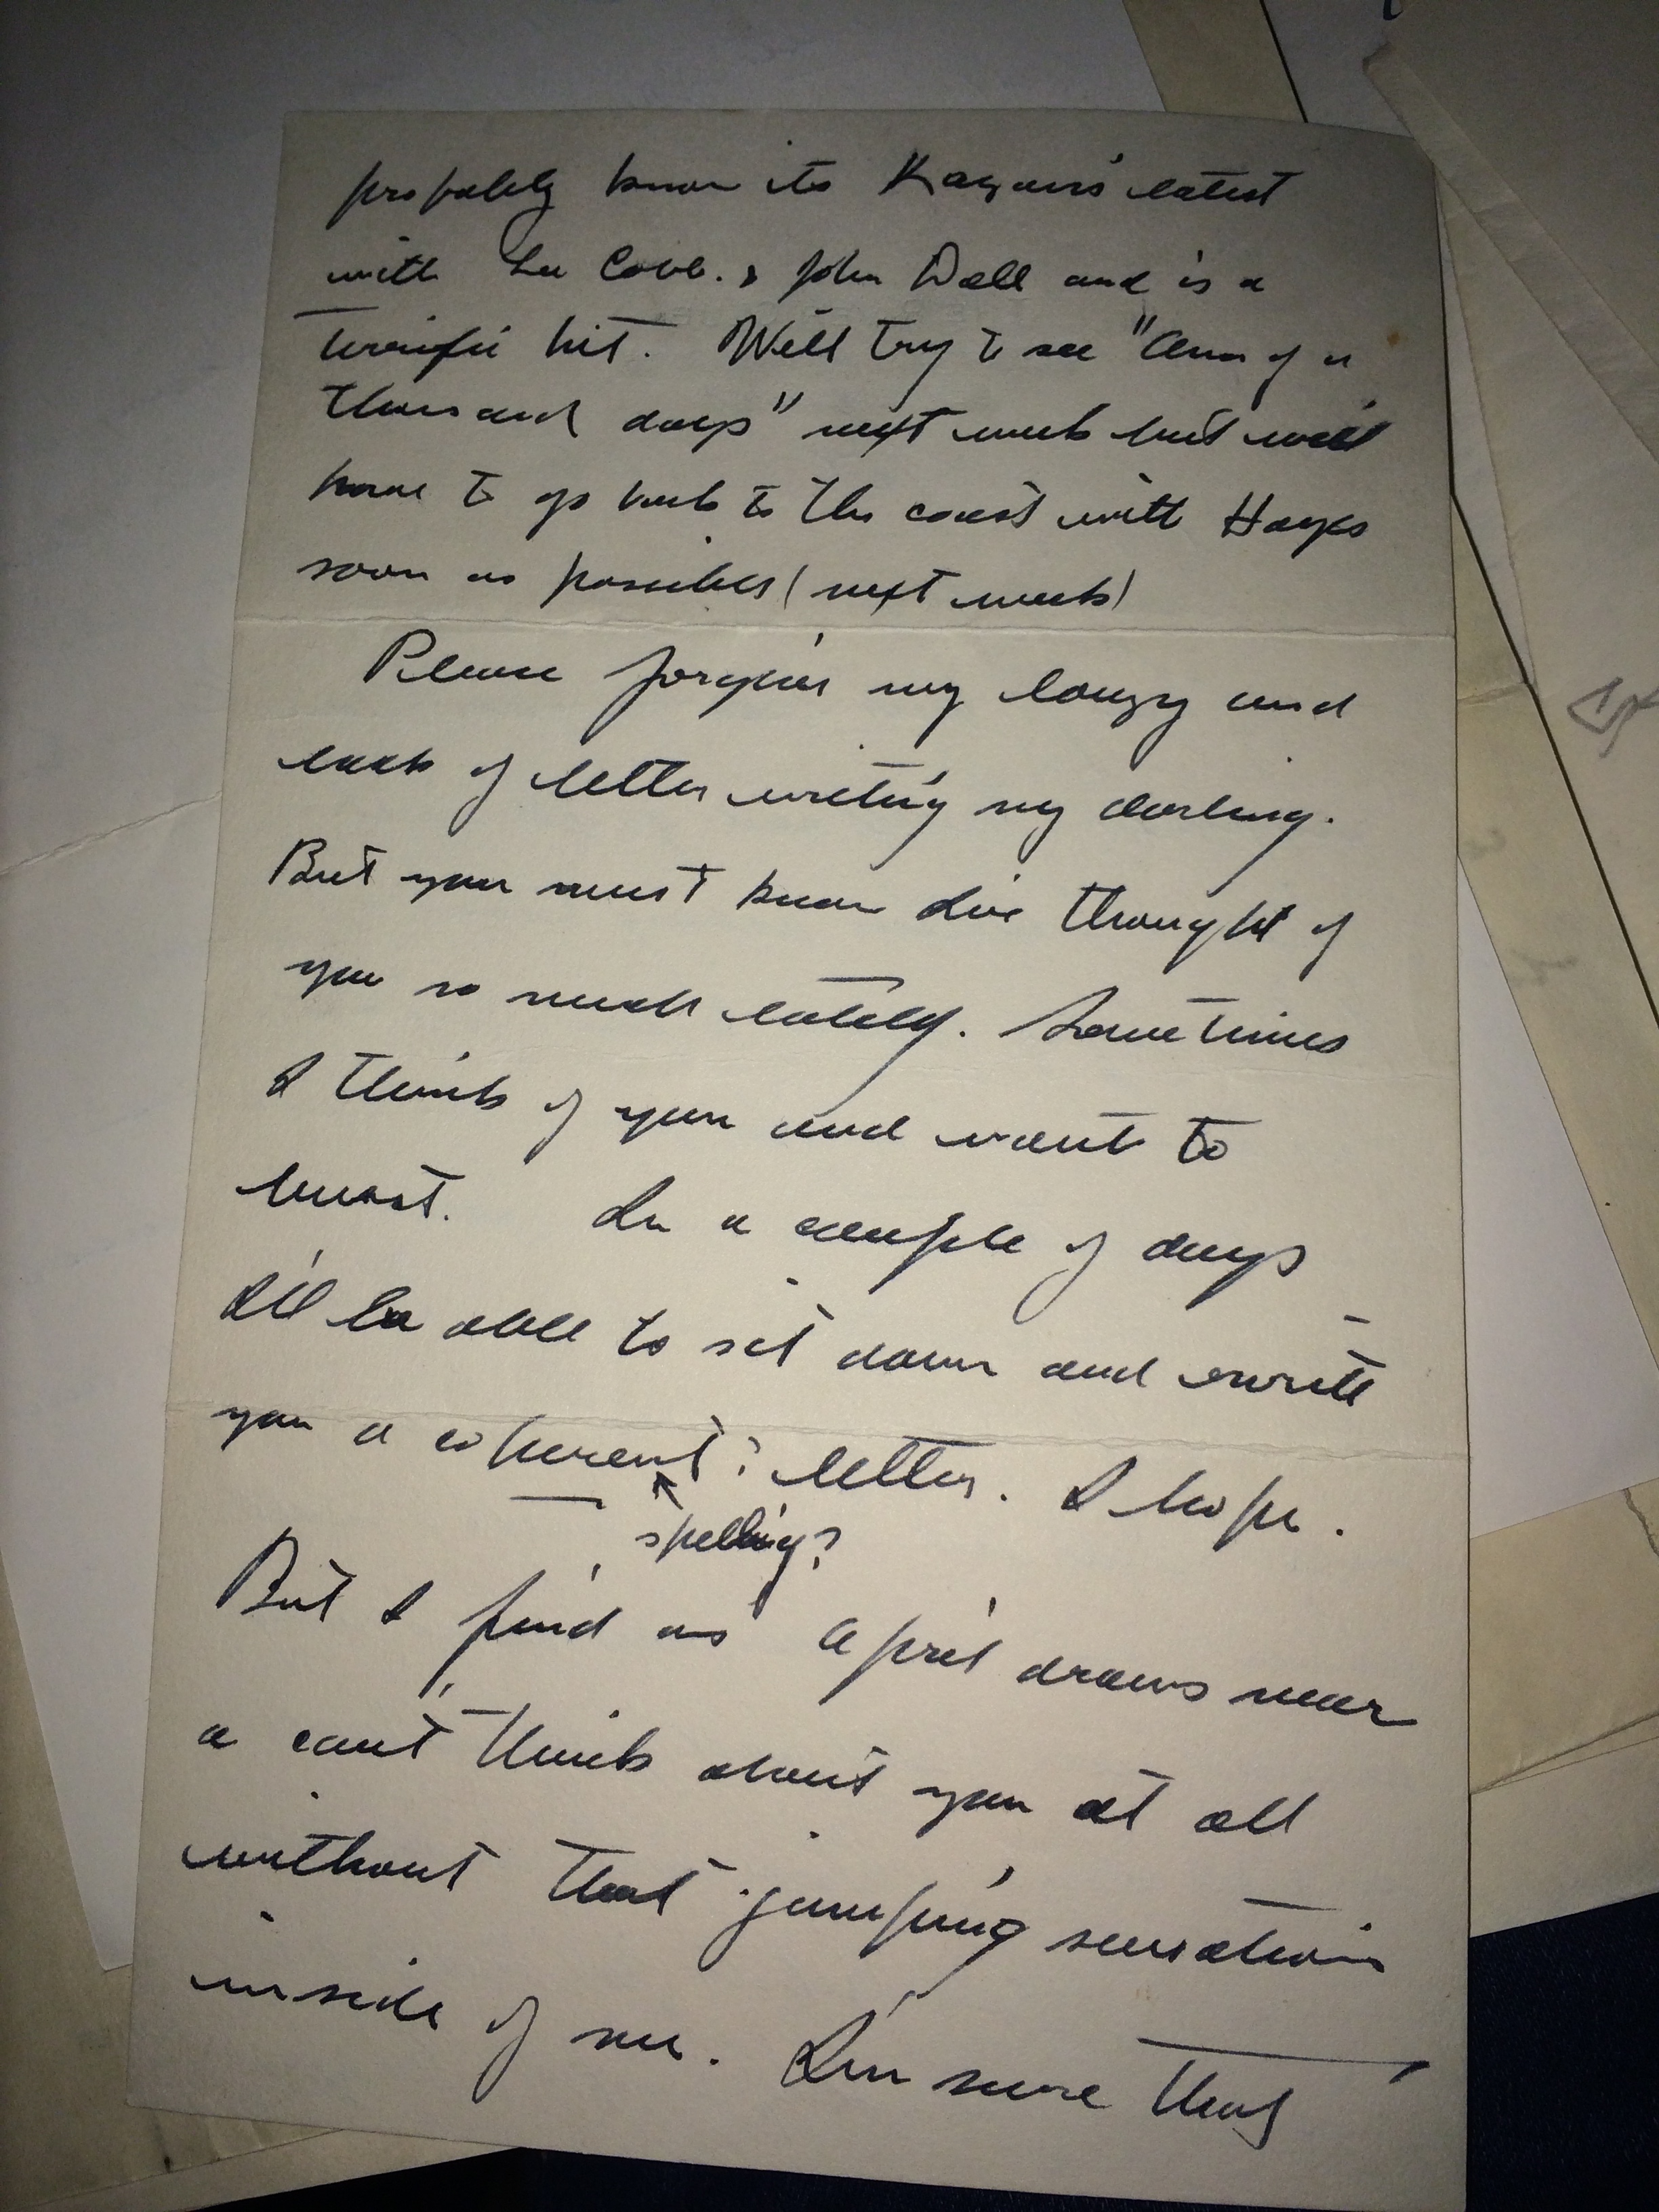 probably know its Kazan's latest
with Lee Cobb. & John Dall and is a
terrific hit. Will try to see "Ann of a
thousand days" next week but will
have to go back to the coast with Hayes
soon as possible (next week)
Please forgive my louzy and
lack of letter writing my darling.
But you must know Ive thought of
you so much lately. Sometimes
I think of you and want to
burst. In a couple of days
I'll be able to sit down and write
you a coherent? letter. I hope.
spelling?
But I find as April draws near
a can't think about you at all
without that jumping sensation
inside of me. I'm sure that